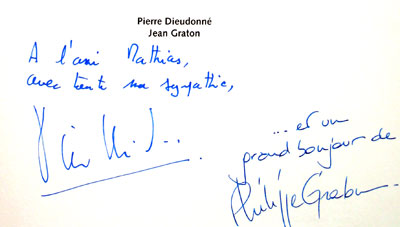 Pierre Dieudonné
Jean Graton
A l'ami Mathias,
avec toute ma sympathie,
... et un
grand bonjour de
Philippe Graton.